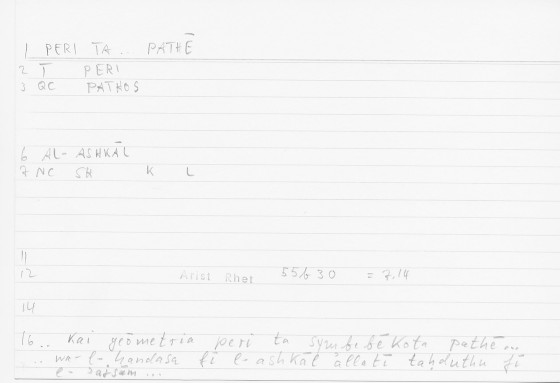 1 PERI TA .. PATHĒ
2 T PERI
3 QC PATHOS
6 AL-ASHKĀL
7 NC SH K L
11
12 Arist Rhet 55b30 = 7,14
14
16 .. kai geōmetria peri ta symbebēkota pathē...
.. wa-l-handasa fī l-ashkāl allatī taḥduthu fī
l-ajsām ...